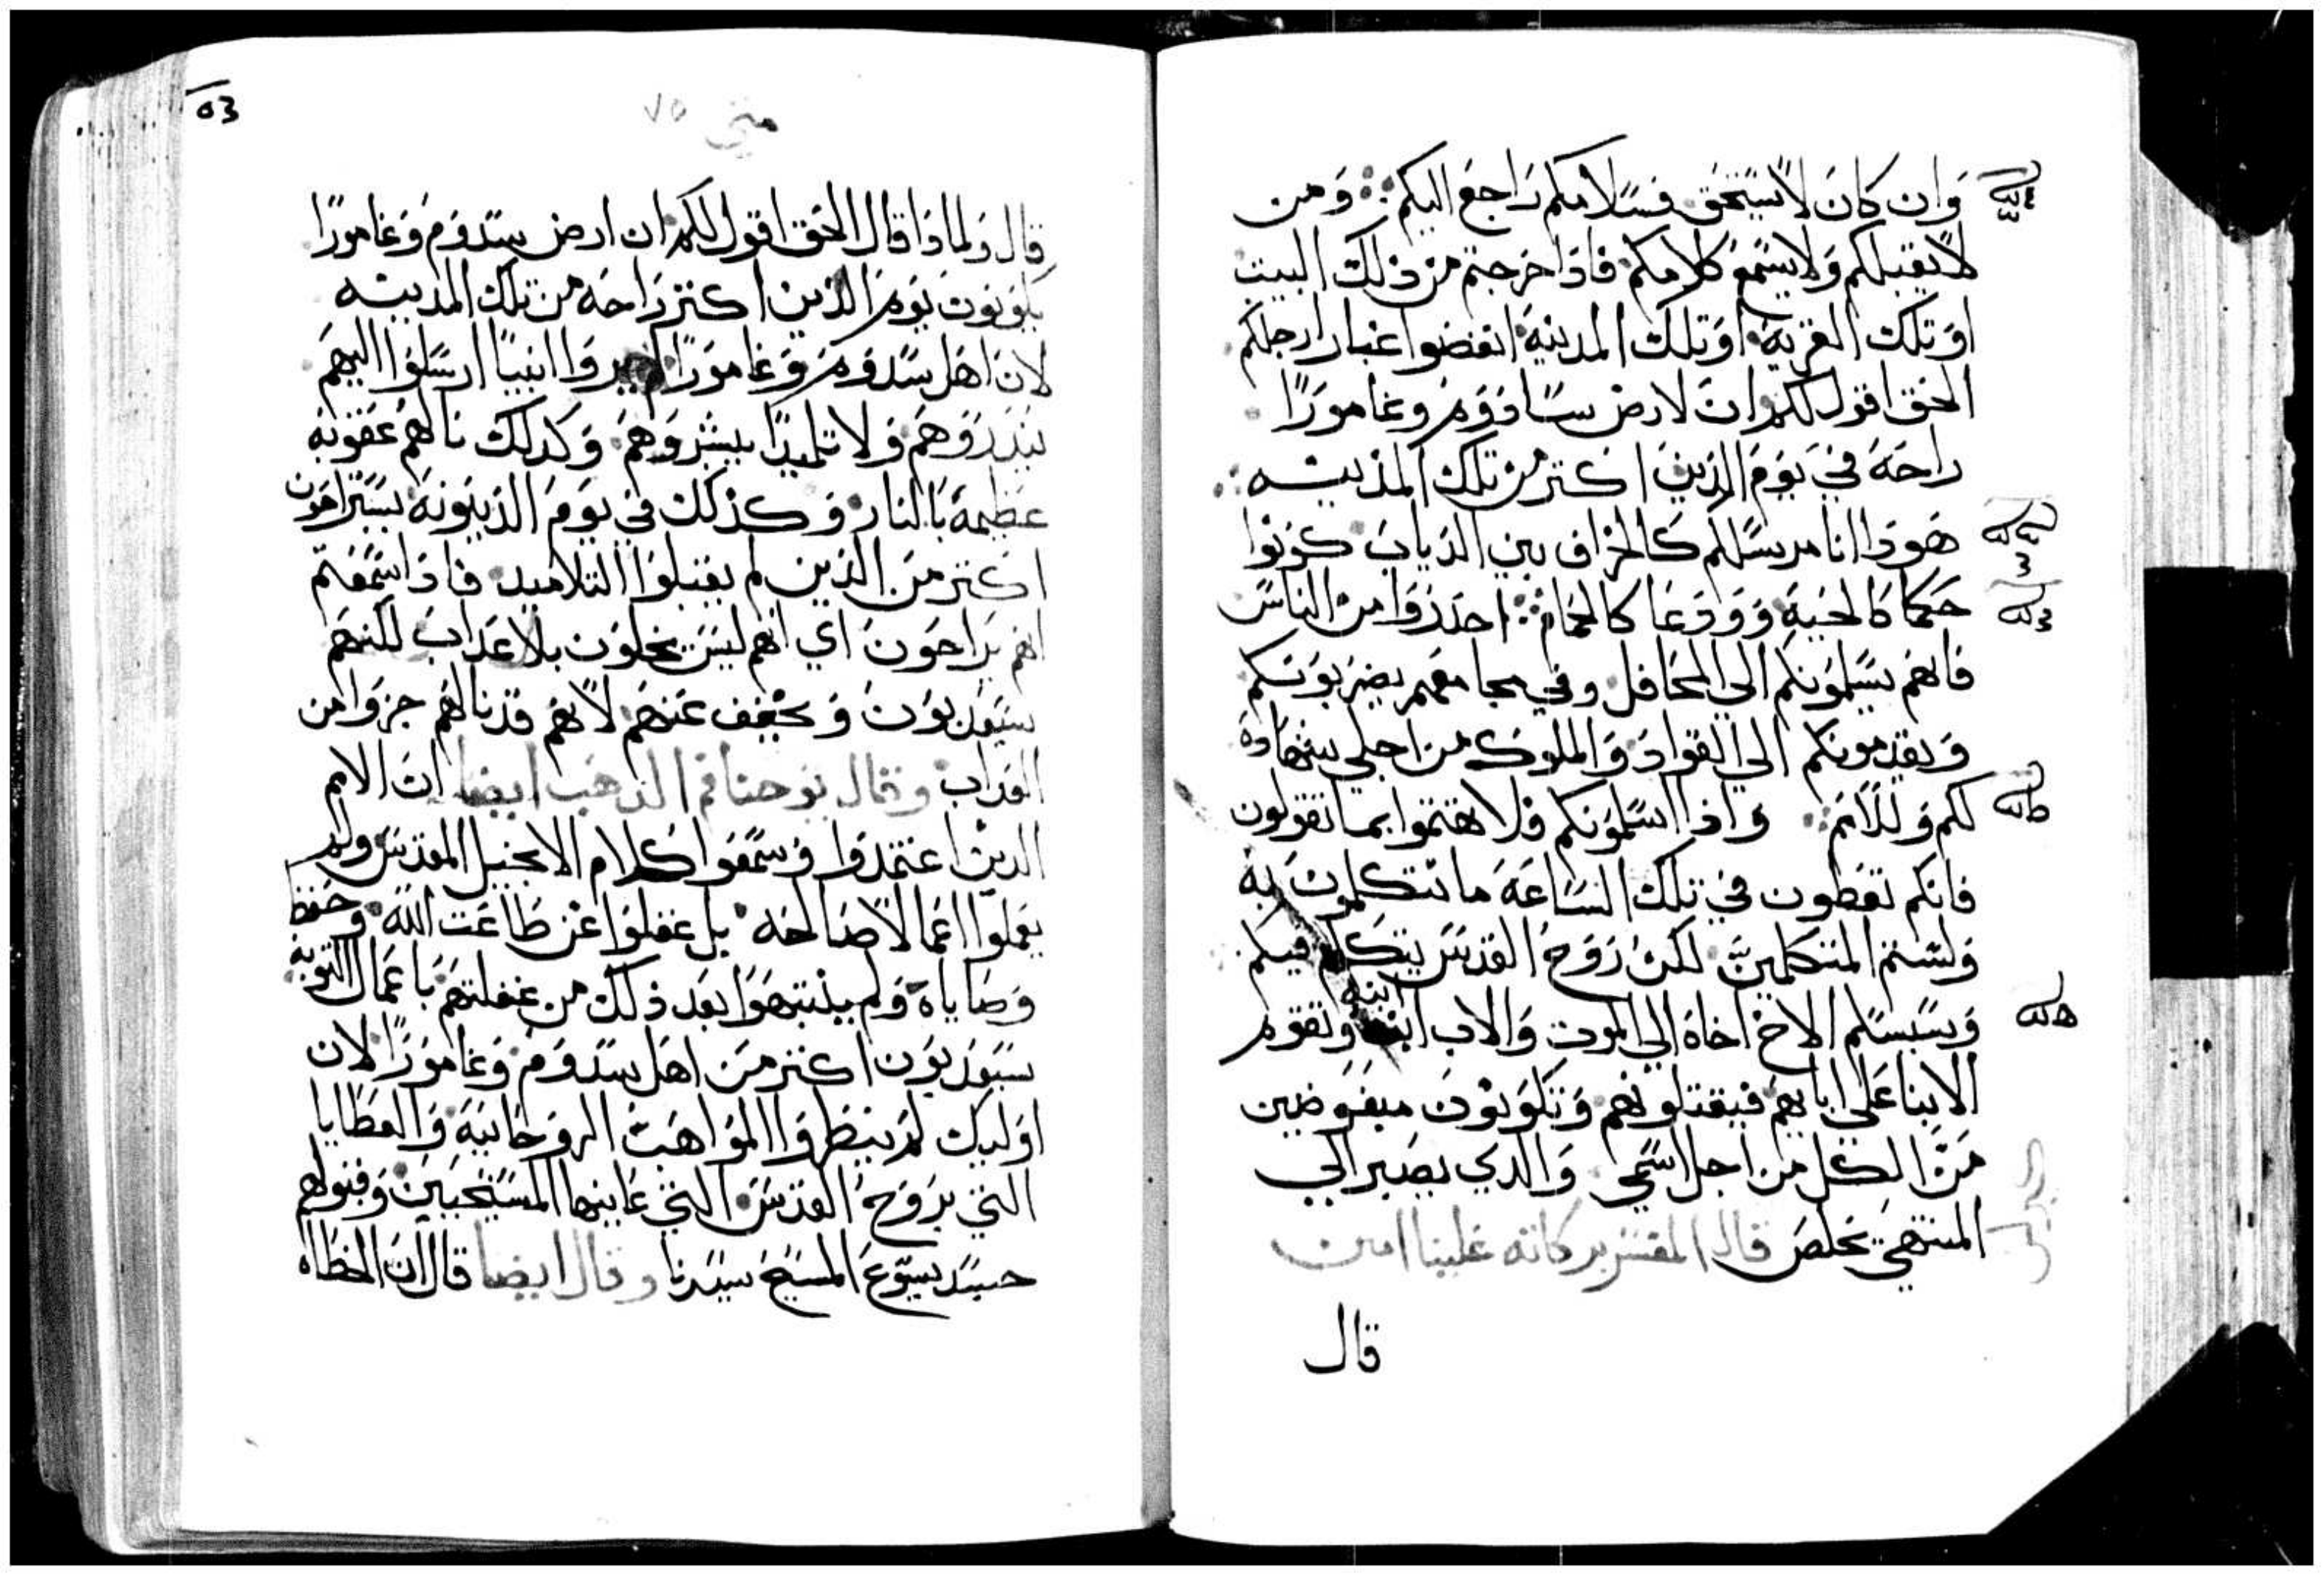 وَان كانَ لا يستحق فسلامكم راجع اليكم ومن
لا يقبلكم ولا يسمع كلامكم فاذا خرجتم من ذلك البيت
او تلك القرية او تلك المدينة انفضوا غبار ارجلكم
الحق اقول لكم ان لارض سادوم وغامورا
راحة في يوم الدين اكتر من تلك المدينه
هوذا انا مرسلكم كالخراف بين الدياب كونوا
حكما كالحية وودعا كالحمام احدروا من الناس
فانهم يسلمونكم الي المحافل وفي مجامعهم يضربونكم
ويقدمونكم الي القواد والملوك من اجلي شهادة
لكم وللامم واذا اسلمونكم فلا تهتموا بما تقولون
فانكم تعطون في تلك الساعة ما تتكلمون به
ولستم المتكلمين لكن روح القدس يتكلم فيكم
وسيسلم الاخ اخاه الي الموت والاب ابنه وتقوم
الابنا علي ابايهم فيقتلونهم وتكونون مبغوضين
من الكل من اجل اسمي والدي يصبر الي
المنتهي يخلص قال المفسر بركاته علينا امين
قال
متي ٧٥
قال ولماذا قال الحق اقول لكم ان ارض سدوم وغامورا
يكونون يوم الدين اكتر راحة من تلك المدينه
لان اهل سدوم وغامورا لم يروا انبيا ارسلوا اليهم
ينذروهم ولا تلميدا يبشروهم وكدلك نالهم عقوبة
عظيمة بالنار وكذلك في يوم الدينونة يستراحون
اكتر من الدين لم يقبلوا التلاميد فاذا سمعتم
انهم يراحون اي انهم ليس يخلون بلا عداب لكنهم
سيعدبون ويخفف عنهم لانهم قد نالهم جزوا من
العداب وقال يوحنا فم الذهب ايضا ان الامم
الدين اعتمدوا وسمعوا كلام الانجيل المقدس ولم
يعملوا اعمالا صالحه بل غفلوا عن طاعت الله وحفظ
وصاياه ولم ينتبهوا بعد ذلك من غفلتهم باعمال التوبة
سيعدبون اكتر من اهل سدوم وغامورا لان
اوليك لم ينظروا المواهب الروحانية والعطايا
التي بروح القدس التي عاينها المسيحيين وقبولهم
جسد يسوع المسيح سيدنا وقال ايضا قال ان الخطاه